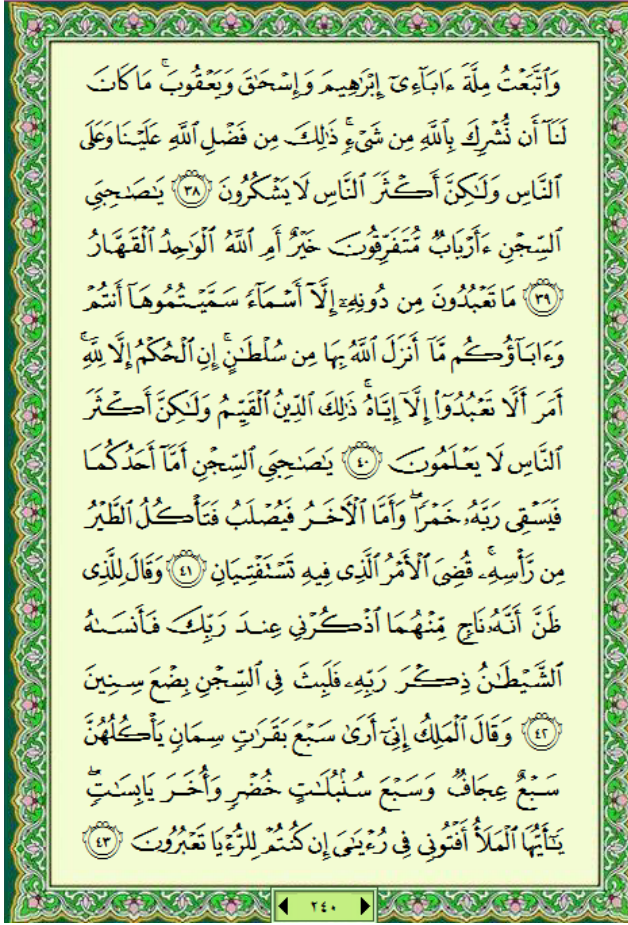 وَٱتَّبَعْتُ مِلَّةَ ءَابَآءِىٓ إِبْرَٰهِيمَ وَإِسْحَٰقَ وَيَعْقُوبَ ۚ مَا كَانَ
لَنَآ أَن نُّشْرِكَ بِٱللَّهِ مِن شَىْءٍ ۚ ذَٰلِكَ مِن فَضْلِ ٱللَّهِ عَلَيْنَا وَعَلَى
ٱلنَّاسِ وَلَٰكِنَّ أَكْثَرَ ٱلنَّاسِ لَا يَشْكُرُونَ ٣٨ يَٰصَٰحِبَىِ
ٱلسِّجْنِ ءَأَرْبَابٌ مُّتَفَرِّقُونَ خَيْرٌ أَمِ ٱللَّهُ ٱلْوَٰحِدُ ٱلْقَهَّارُ
٣٩ مَا تَعْبُدُونَ مِن دُونِهِۦٓ إِلَّآ أَسْمَآءً سَمَّيْتُمُوهَآ أَنتُمْ
وَءَابَآؤُكُم مَّآ أَنزَلَ ٱللَّهُ بِهَا مِن سُلْطَٰنٍ ۚ إِنِ ٱلْحُكْمُ إِلَّا لِلَّهِ ۚ
أَمَرَ أَلَّا تَعْبُدُوٓا۟ إِلَّآ إِيَّاهُ ۚ ذَٰلِكَ ٱلدِّينُ ٱلْقَيِّمُ وَلَٰكِنَّ أَكْثَرَ
ٱلنَّاسِ لَا يَعْلَمُونَ ٤٠ يَٰصَٰحِبَىِ ٱلسِّجْنِ أَمَّآ أَحَدُكُمَا
فَيَسْقِى رَبَّهُۥ خَمْرًا ۖ وَأَمَّا ٱلْءَاخَرُ فَيُصْلَبُ فَتَأْكُلُ ٱلطَّيْرُ
مِن رَّأْسِهِۦ ۚ قُضِىَ ٱلْأَمْرُ ٱلَّذِى فِيهِ تَسْتَفْتِيَانِ ٤١ وَقَالَ لِلَّذِى
ظَنَّ أَنَّهُۥ نَاجٍ مِّنْهُمَا ٱذْكُرْنِى عِندَ رَبِّكَ فَأَنسَىٰهُ
ٱلشَّيْطَٰنُ ذِكْرَ رَبِّهِۦ فَلَبِثَ فِى ٱلسِّجْنِ بِضْعَ سِنِينَ
٤٢ وَقَالَ ٱلْمَلِكُ إِنِّىٓ أَرَىٰ سَبْعَ بَقَرَٰتٍ سِمَانٍ يَأْكُلُهُنَّ
سَبْعٌ عِجَافٌ وَسَبْعَ سُنۢبُلَٰتٍ خُضْرٍ وَأُخَرَ يَابِسَٰتٍ ۖ
يَٰٓأَيُّهَا ٱلْمَلَأُ أَفْتُونِى فِى رُءْيَٰىَ إِن كُنتُمْ لِلرُّءْيَا تَعْبُرُونَ ٤٣
٢٤٠